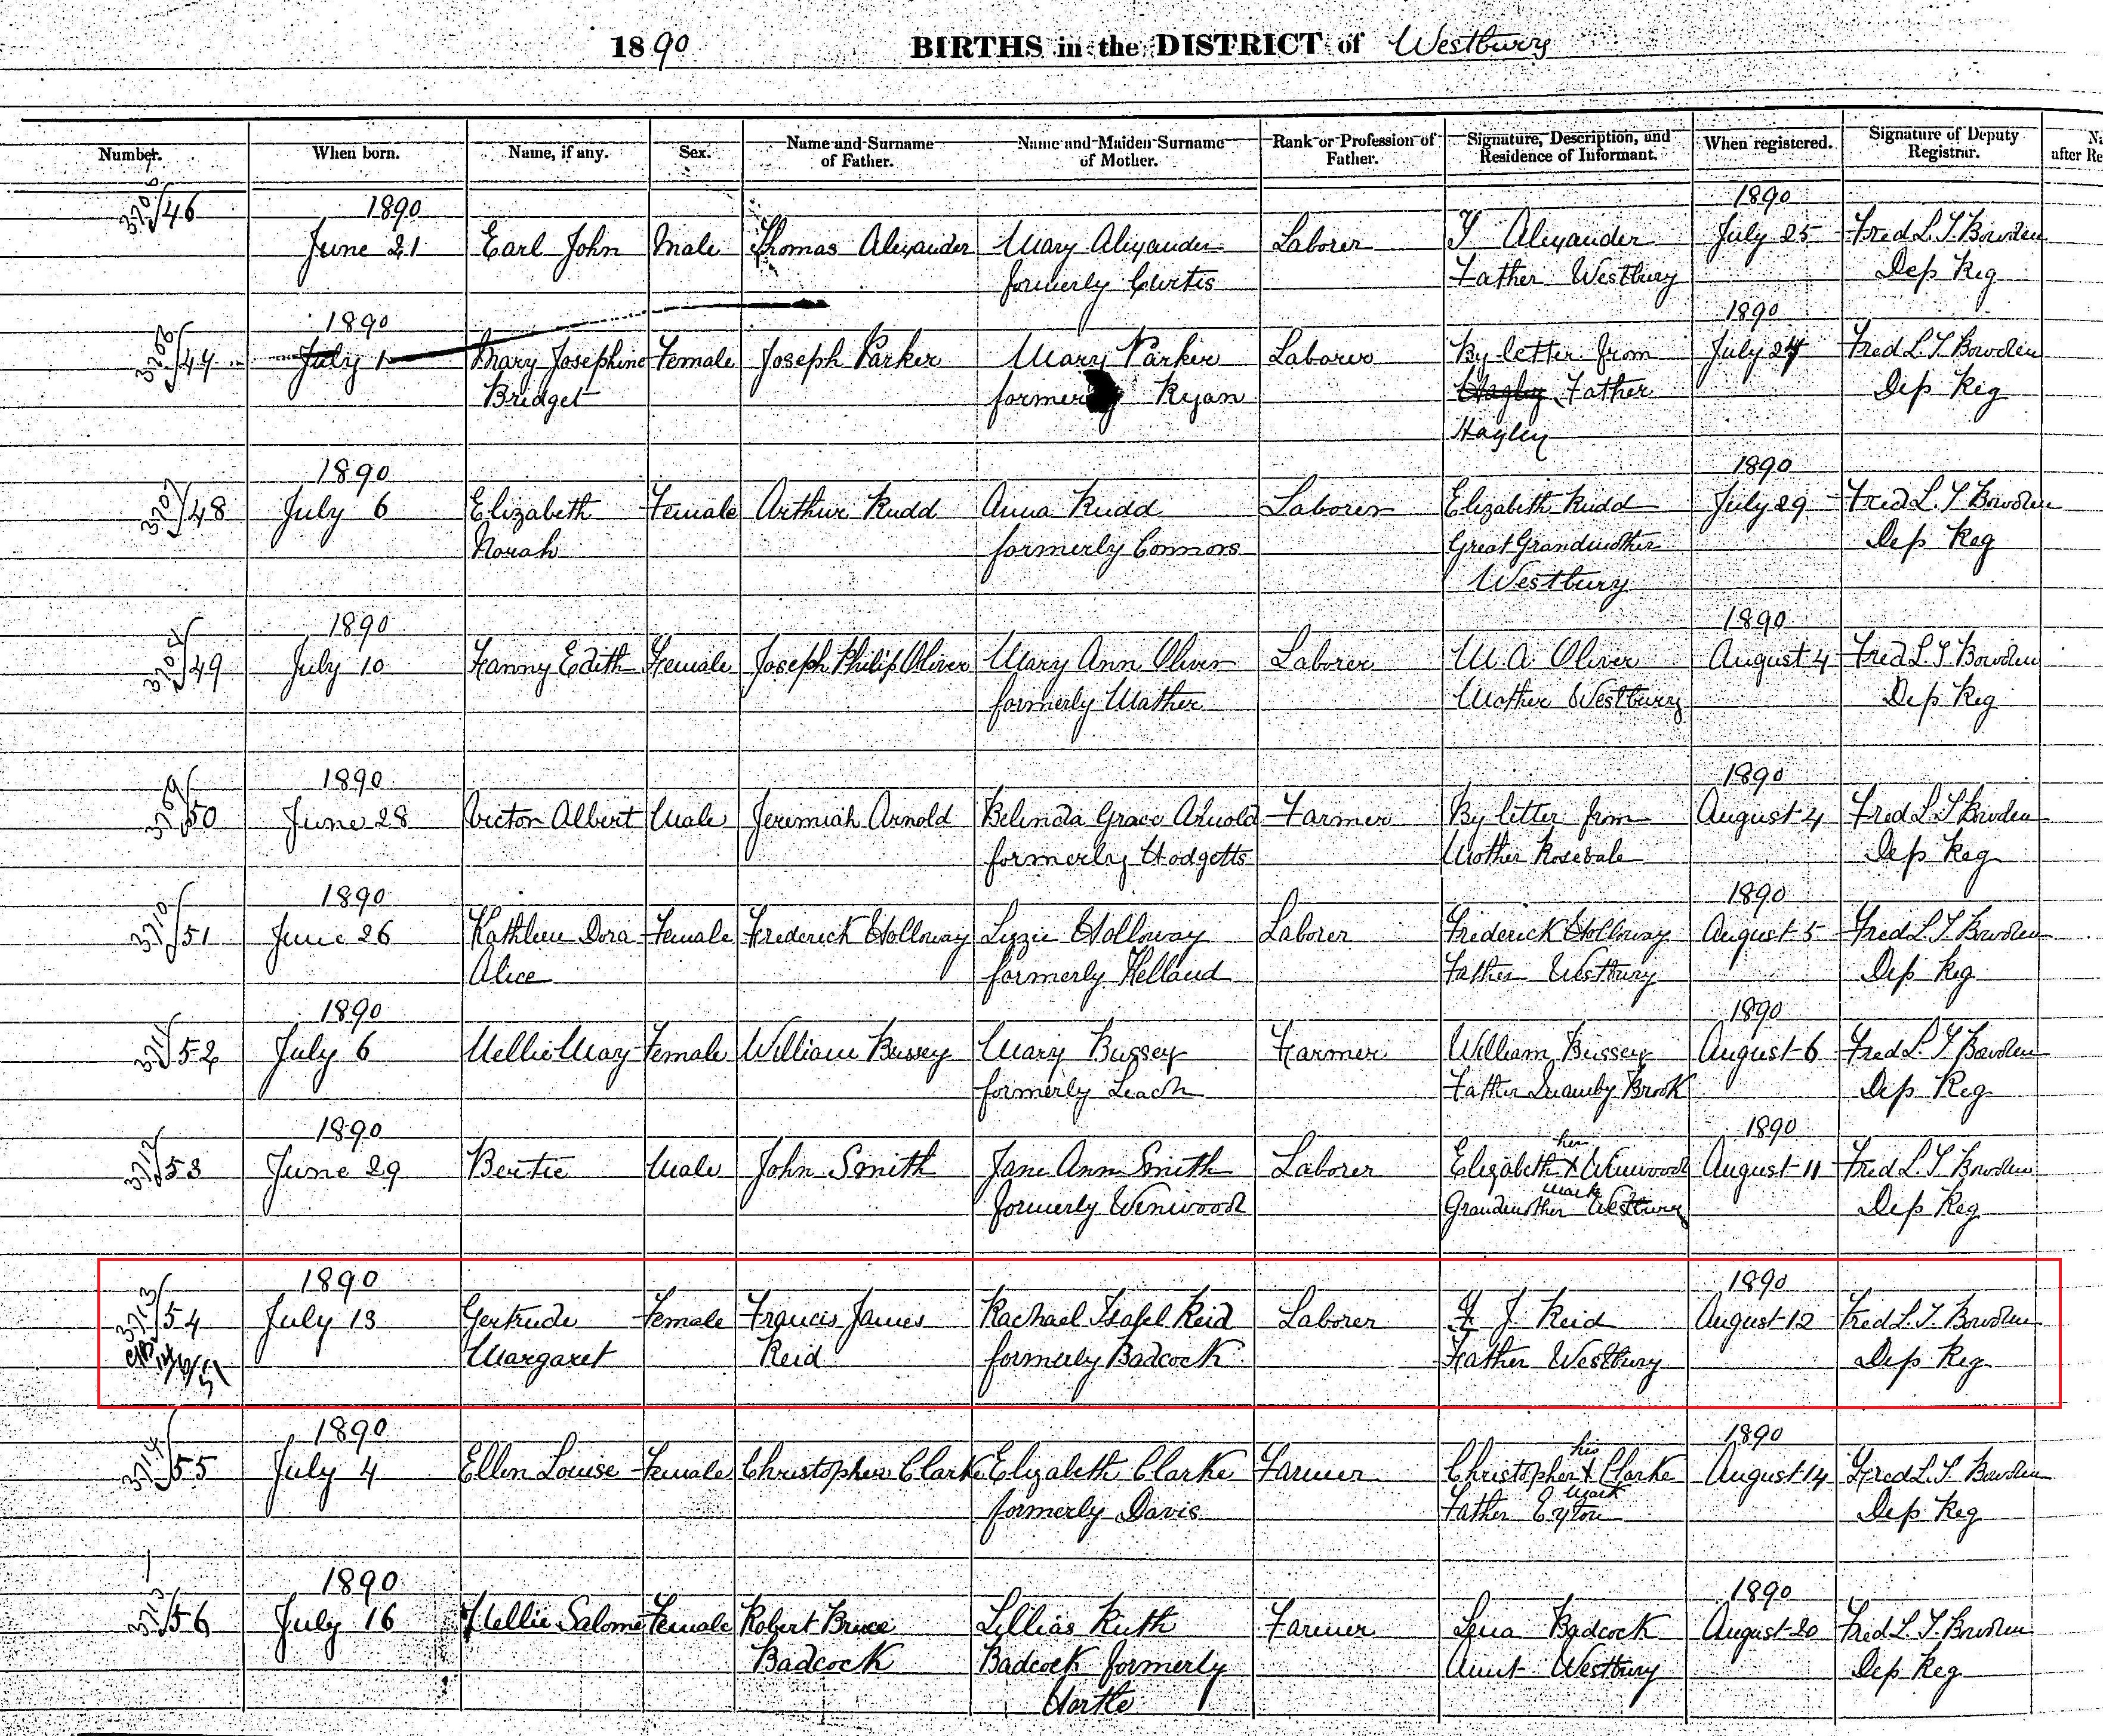 1890 BIRTHS in the DISTRICT of Westbury
Number. When born. Name, if any. Sex. Name and Surname of Father. Name and Maiden Surname of Mother. Rank or Profession of Father. Signature, Description, and Residence of Informant. When registered. Signature of Deputy Registrar.
1890 1890
46 June 21 Earl John Male Thomas Alexander Mary Alexander Laborer T Alexander July 25 Fred L. T. Bowden
formerly Curtis Father Westbury Dep Reg
1890 1890
3706 47 July 1 Mary Josephine Female Joseph Parker Mary Parker Laborer By letter from July 24 Fred L. T. Bowden
Bridget formerly Ryan Hagley Father Dep Reg
Hagley
1890 1890
3707 48 July 6 Elizabeth Female Arthur Rudd Anna Rudd Laborer Elizabeth Rudd July 29 Fred L. T. Bowden
Norah formerly Connors Great Grandmother Dep Reg
Westbury
1890 1890
3708 49 July 10 Fanny Edith Female Joseph Philip Oliver Mary Ann Oliver Laborer M A Oliver August 4 Fred L. T. Bowden
formerly Mather Mother Westbury Dep Reg
1890 1890
3709 50 June 28 Victor Albert Male Jeremiah Arnold Belinda Grace Arnold Farmer By letter from August 4 Fred L. T. Bowden
formerly Hodgetts Mother Rosevale Dep Reg
1890 1890
3710 51 June 26 Kathleen Dora Female Frederick Holloway Lizzie Holloway Laborer Frederick Holloway August 5 Fred L. T. Bowden
Alice formerly Kelland Father Westbury Dep Reg
1890 1890
3711 52 July 6 Nellie May Female William Bussey Mary Bussey Farmer William Bussey August 6 Fred L. T. Bowden
formerly Leach Father Quamby Brook Dep Reg
1890 her 1890
3712 53 June 29 Bertie Male John Smith Jane Ann Smith Laborer Elizabeth X Winwood August 11 Fred L. T. Bowden
mark
formerly Winwood Grandmother Westbury Dep Reg
1890 1890
3713 54 July 13 Gertrude Female Francis James Rachael Isabel Reid Laborer F J Reid August 12 Fred L. T. Bowden
Margaret Reid formerly Badcock Father Westbury Dep Reg
1890 his 1890
3714 55 July 4 Ellen Louise Female Christopher Clarke Elizabeth Clarke Farmer Christopher X Clarke August 14 Fred L. T. Bowden
mark
formerly Davis Father Exton Dep Reg
1890 1890
56 July 16 Nellie Salome Female Robert Bruce Lillias Ruth Farmer Lena Badcock August 20 Fred L. T. Bowden
Badcock Badcock formerly Aunt Westbury Dep Reg
Hortle